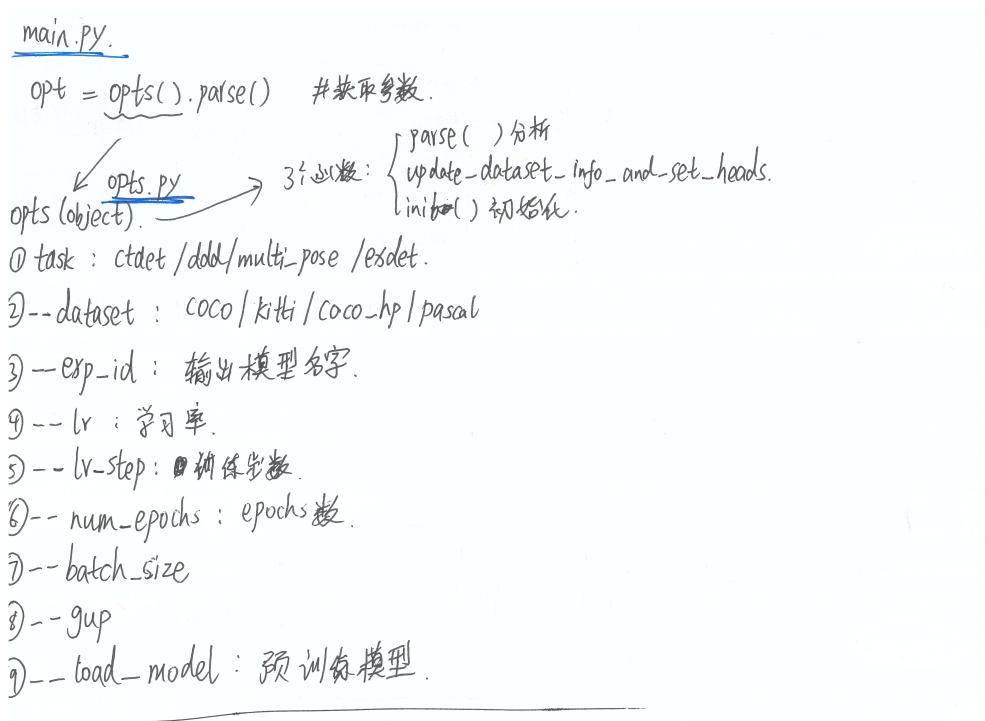 main.py.
opt = opts().parse() #获取参数.
parse( )分析
opts.py
3个函数:
update_dataset_info_and_set_heads.
opts(object).
init( )初始化.
① task : ctdet /ddd/multi_pose /exdet.
②--dataset : coco/kitti/coco_hp/pascal
③--exp_id : 输出模型名字.
④--lr : 学习率.
⑤--lr-step: 训练步数.
⑥--num_epochs : epochs数.
⑦--batch_size
⑧--gup
⑨--load_model : 预训练模型.